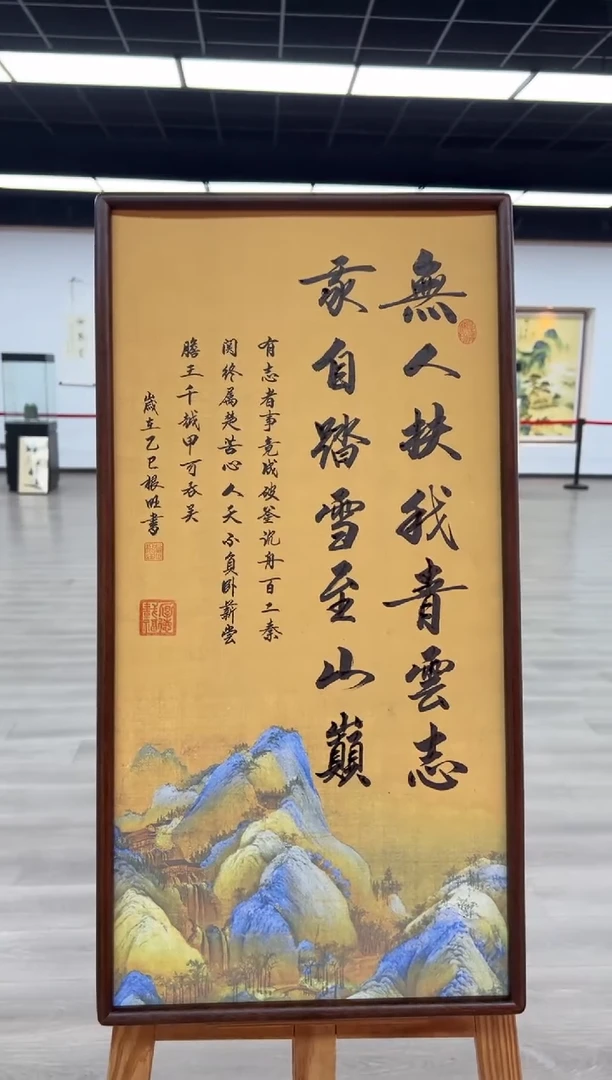 無人扶我青雲志
我自踏雪至山巔
有志者事竟成破釜沉舟百二秦
関終属楚苦心人天不負卧薪嘗
膽三千越甲可吞吴
歲在乙巳根旺書